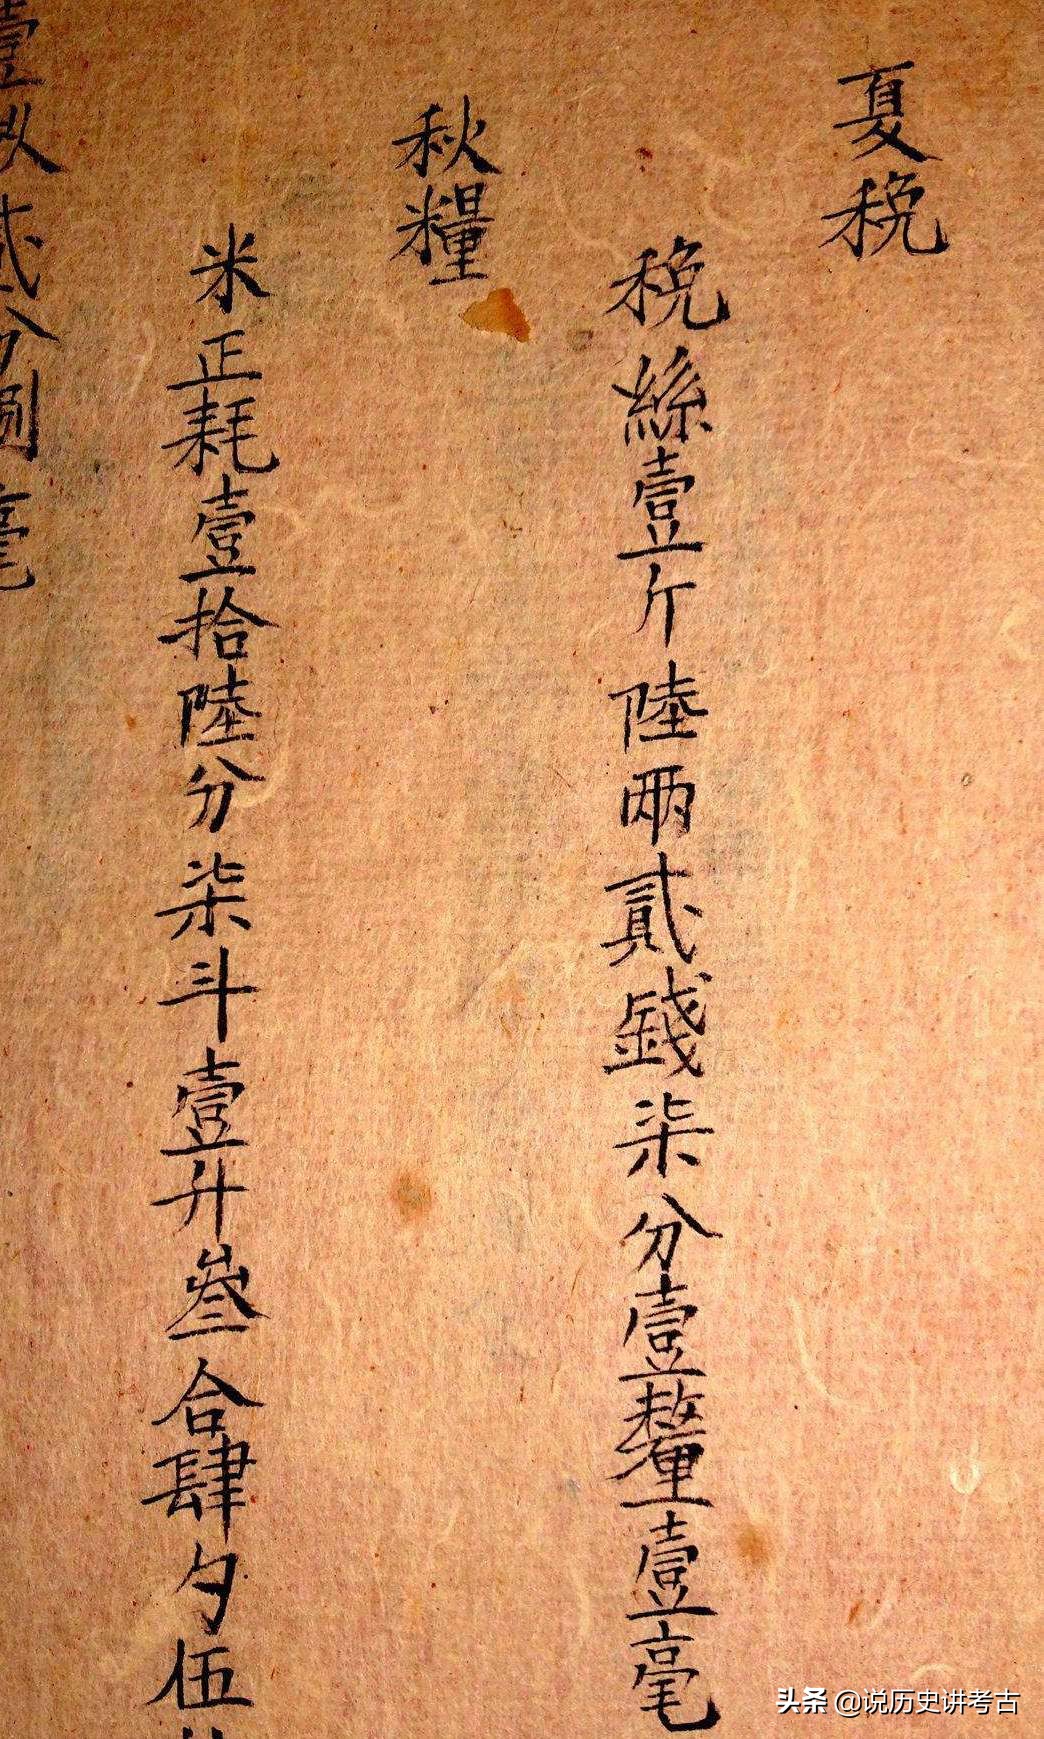 夏税
税絲壹斤陸兩貳錢柒分壹釐壹毫
秋糧
米正耗壹拾陸分柒斗壹升叁合肆勺伍
頭条 @说历史讲考古